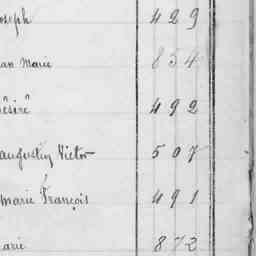 oseph 429
an Marie 854
ésiré 492
augustin Victor 507
marie François 491
arie 872